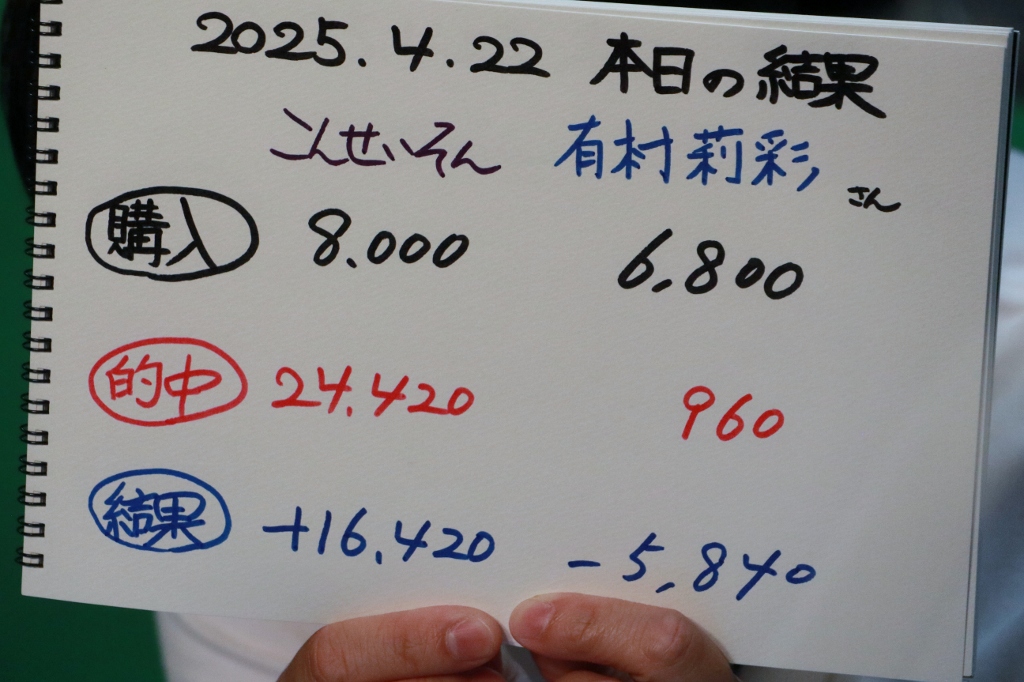 2025.4.22 本日の結果
こんせいそん 有村莉彩さん
購入 8.000 6,800
的中 24.420 960
結果 +16,420 -5,840